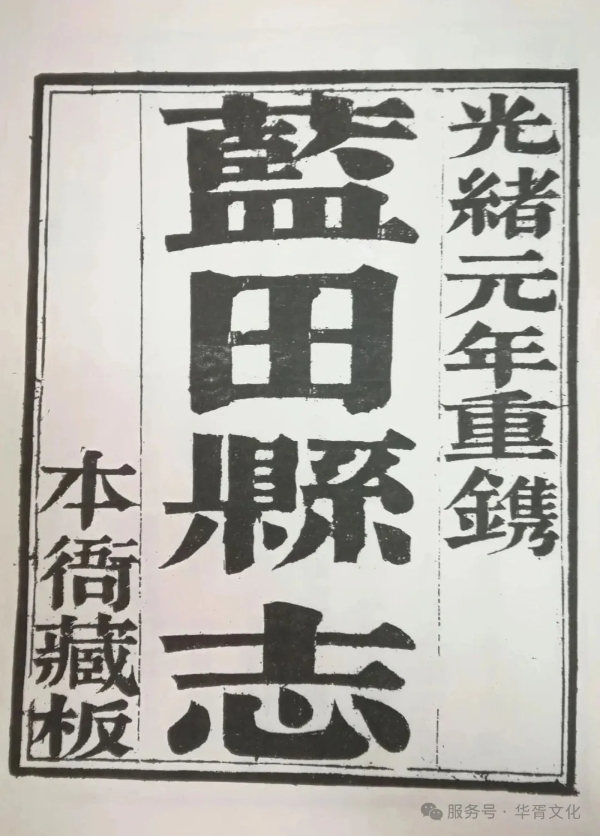 光緒元年重鐫
藍田縣志
本衙藏板
服务号·华胥文化